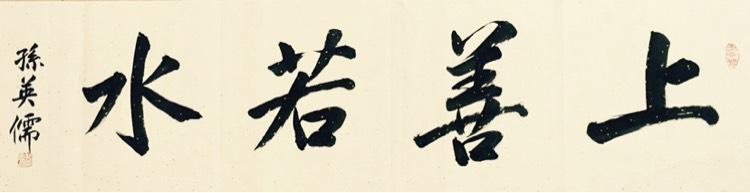 上善若水
孫英儒